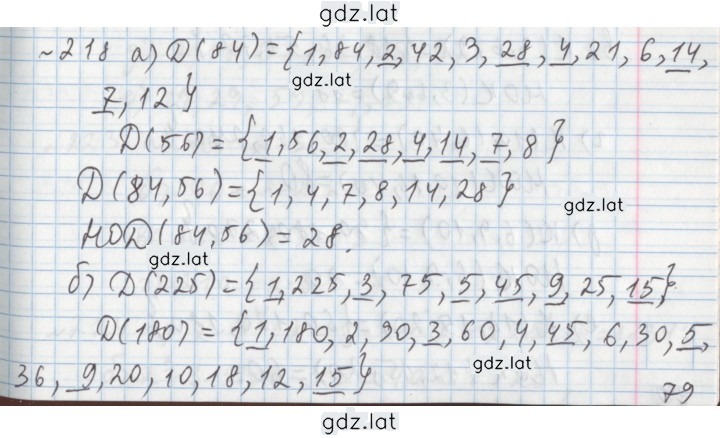 gdz.lat
~218 а) D(84)={1,84,2,42,3,28,4,21,6,14,
gdz.lat
7,12}
D(56)={1,56,2,28,4,14,7,8}
D(84,56)={1,4,7,8,14,28}
gdz.lat
НОD(84,56)=28.
gdz.lat
б) D(225)={1,225,3,75,5,45,9,25,15}
D(180)={1,180,2,90,3,60,4,45,6,30,5,
gdz.lat
36,9,20,10,18,12,15}
79
gdz.lat